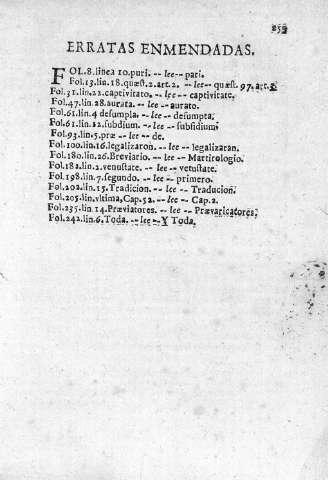 259
ERRATAS ENMENDADAS.
FOL.8.linea 10.puri. -- lee -- pari.
Fol.13.lin.18.quæst.2.art.2. -- lee -- quæst.97.art.3
Fol.31.lin.22.captivitato. -- lee -- captivitate.
Fol.47.lin.28.aurata. -- lee -- aurato.
Fol.61.lin.4 desumpla. -- lee -- desumpta.
Fol.61.lin.12.subdium. -- lee -- subsidium.
Fol.93.lin.5.præ -- lee -- de.
Fol.100.lin.16.legalizaron. -- lee -- legalizaran.
Fol.180.lin.26.Breviario. -- lee -- Martirologio.
Fol.182.lin.2.venustate. -- lee -- vetustate.
Fol.198.lin.7.segundo. -- lee -- primero.
Fol.202.lin.15.Tradicion. -- lee -- Traducion.
Fol.205.lin.vltima,Cap.52. -- lee -- Cap.2.
Fol.235.lin.14.Præviatores. -- lee -- Prævaricatores.
Fol.242.lin.6.Toda. -- lee -- Y Toda.